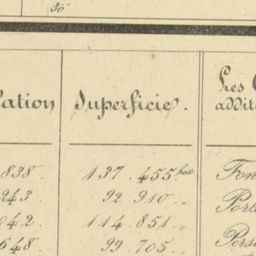 30
ation Superficie. Les
addit
838. 137.455 hes Fon
243 92.910 „ Port
042. 114.851 „
648. 99.705 „ Pers